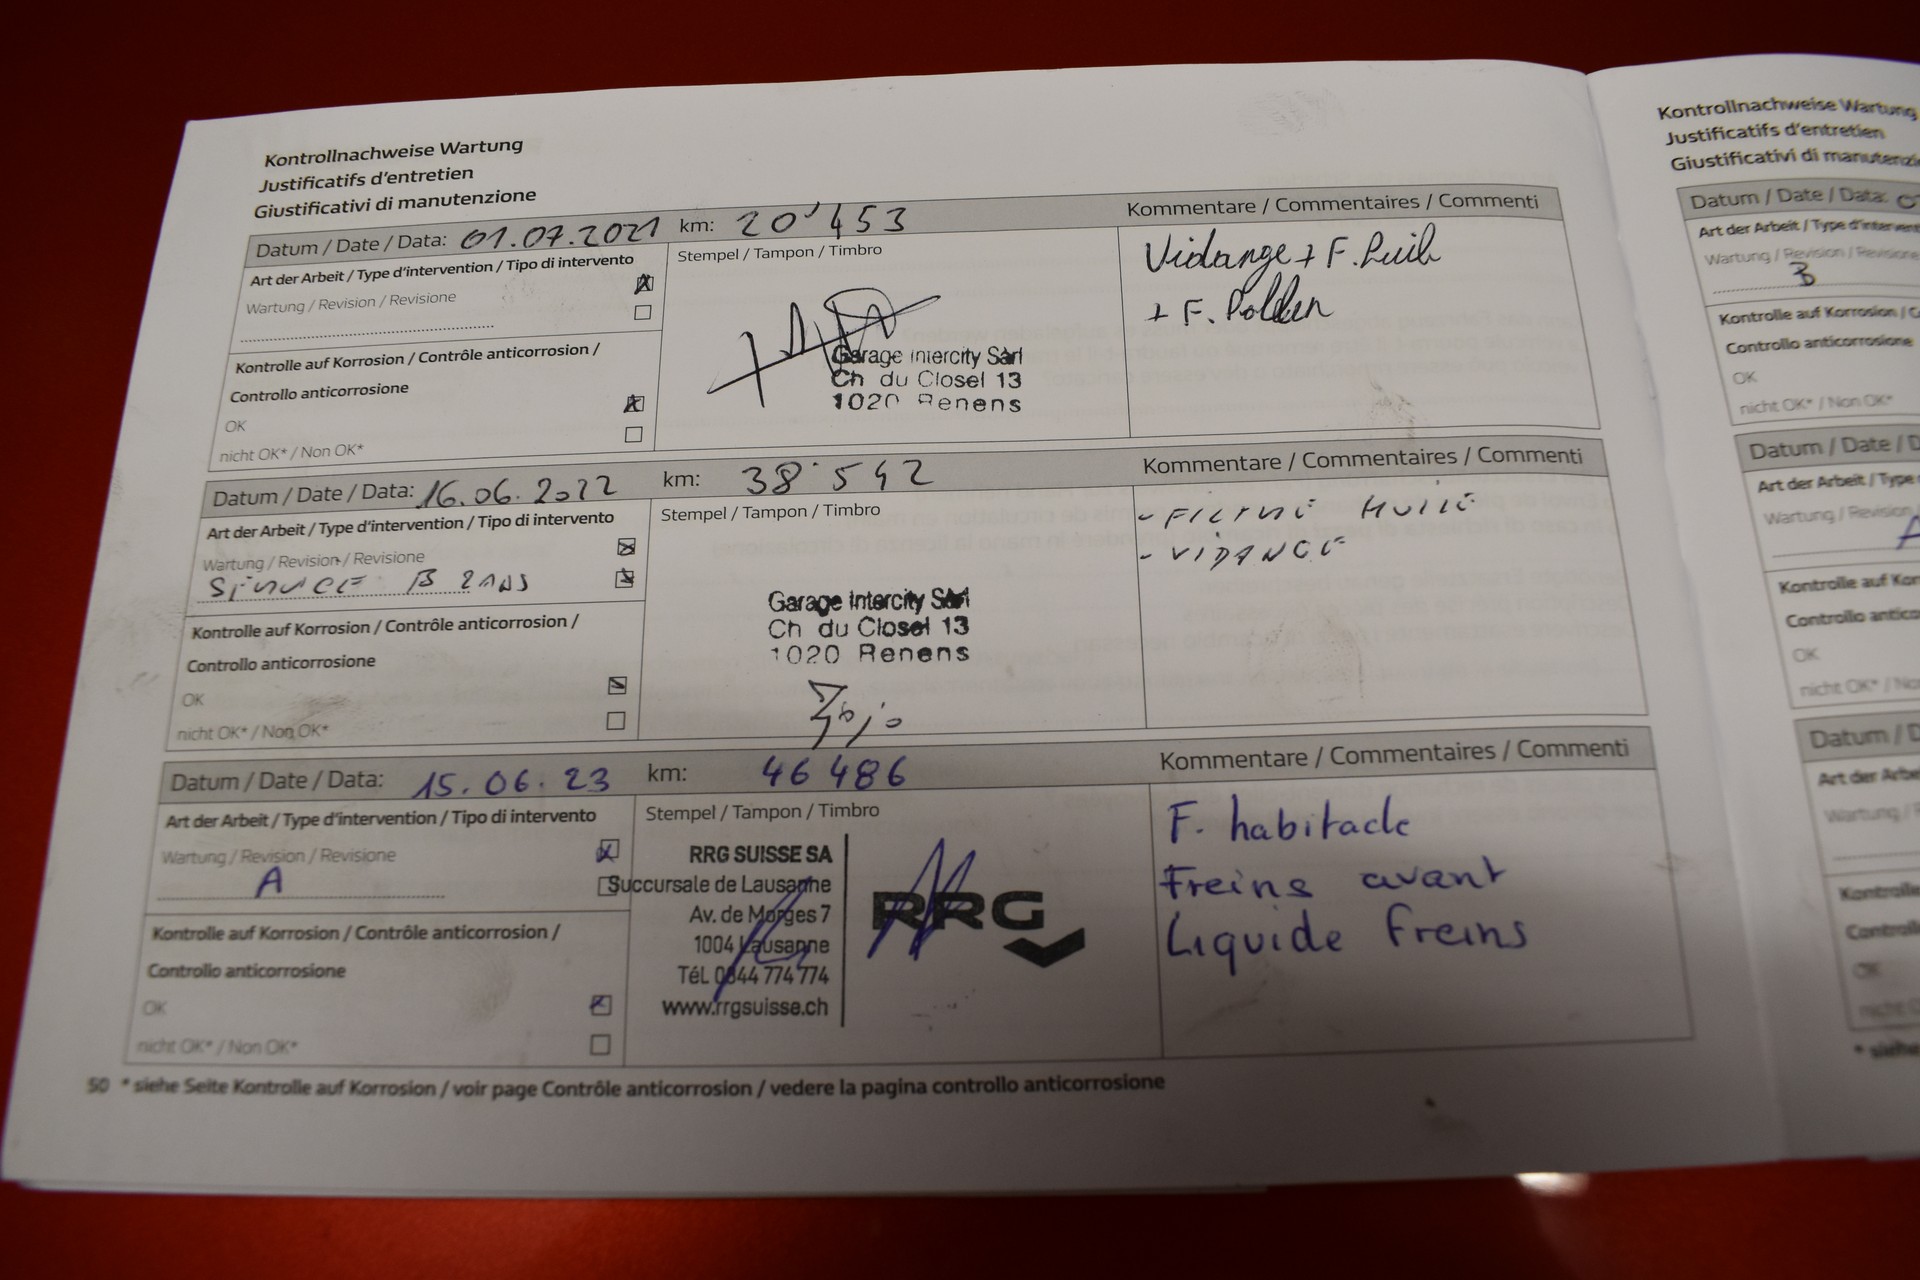 Kontrollnachweise Wartung
Justificatifs d'entretien
Giustificativi di manutenzione
Datum / Date / Data: 01.07.2021 km: 20'453 Kommentare / Commentaires / Commenti
Art der Arbeit / Type d'intervention / Tipo di intervento
Wartung / Revision / Revisione
Stempel / Tampon / Timbro
Vidange + F.
+ F. Pollen
Garage Intercity Sàrl
Ch du Closel 13
1020 Renens
Kontrolle auf Korrosion / Contrôle anticorrosion /
Controllo anticorrosione
OK
nicht OK* / Non OK*
Datum / Date / Data: 16.06.2022 km: 38'542 Kommentare / Commentaires / Commenti
Art der Arbeit / Type d'intervention / Tipo di intervento
Wartung / Revision / Revisione
SERVICE B 2ANS
Stempel / Tampon / Timbro
- FILTRE HUILE
- VIDANGE
Garage Intercity Sàrl
Ch du Closel 13
1020 Renens
Kontrolle auf Korrosion / Contrôle anticorrosion /
Controllo anticorrosione
OK
nicht OK* / Non OK*
Datum / Date / Data: 15.06.23 km: 46 486 Kommentare / Commentaires / Commenti
Art der Arbeit / Type d'intervention / Tipo di intervento
Wartung / Revision / Revisione
A
Stempel / Tampon / Timbro
RRG SUISSE SA
Succursale de Lausanne
Av. de Morges 7
1004 Lausanne
Tél. 0844 774 774
www.rrgsuisse.ch
RRG
F. habitacle
Freins avant
Liquide freins
Kontrolle auf Korrosion / Contrôle anticorrosion /
Controllo anticorrosione
OK
nicht OK* / Non OK*
50 * siehe Seite Kontrolle auf Korrosion / voir page Contrôle anticorrosion / vedere la pagina controllo anticorrosione
Kontrollnachweise Wartung
Justificatifs d'entretien
Giustificativi di
Datum / Date / Data:
Art der Arbeit / Type
Wartung / Revision / Revisione
B
Kontrolle auf Korrosion /
Controllo anticorrosione
OK
nicht OK* / Non OK*
Datum / Date /
Art der Arbeit / Type
Wartung / Revision
A
Kontrolle auf
Controllo
OK
nicht OK* /
Datum /
Art der
Wartung /
Kontrolle
OK
* siehe